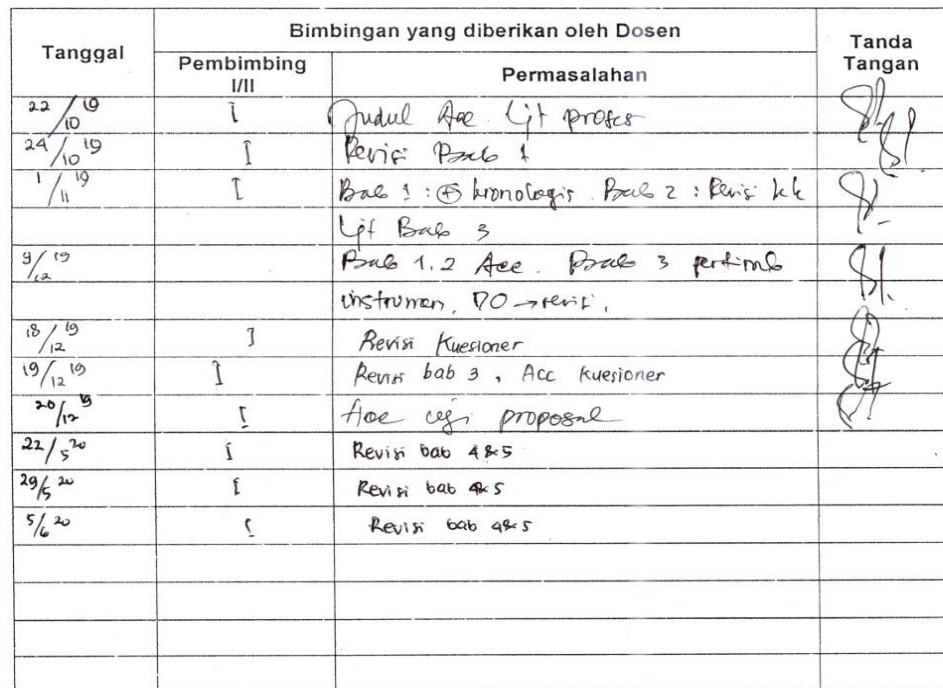 Tanggal
Bimbingan yang diberikan oleh Dosen
Tanda
Tangan
Pembimbing
I/II
Permasalahan
22/10 19 I Judul Acc. Ljt proses
24/10 19 I Revisi Bab 1
1/11 19 I Bab 1 : ⊕ kronologis. Bab 2 : Revisi kk
Ljt Bab 3
9/12 19 Bab 1.2 Acc. Bab 3
instrumen, DO → revisi.
18/12 19 I Revisi Kuesioner
19/12 19 I Revisi bab 3, Acc kuesioner
20/12 19 I Acc uji proposal
22/5 20 I Revisi bab 4 & 5
29/5 20 I Revisi bab 4 & 5
5/6 20 I Revisi bab 4 & 5